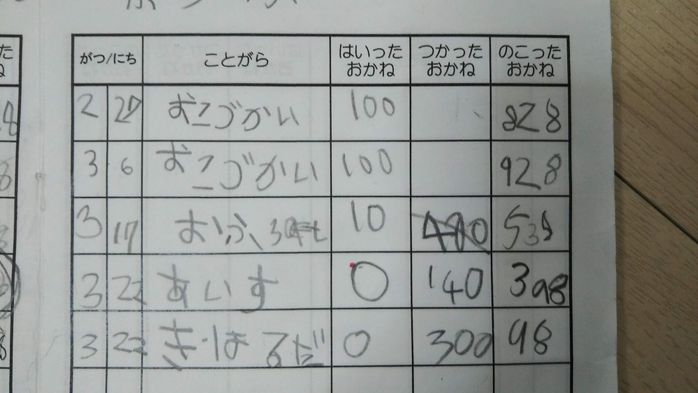 がつ/にち ことがら はいったおかね つかったおかね のこったおかね
2 27 おこづかい 100 828
3 6 おこづかい 100 928
3 17 10
3 22 あいす 0 140 398
3 22 きーほるだ 0 300 98